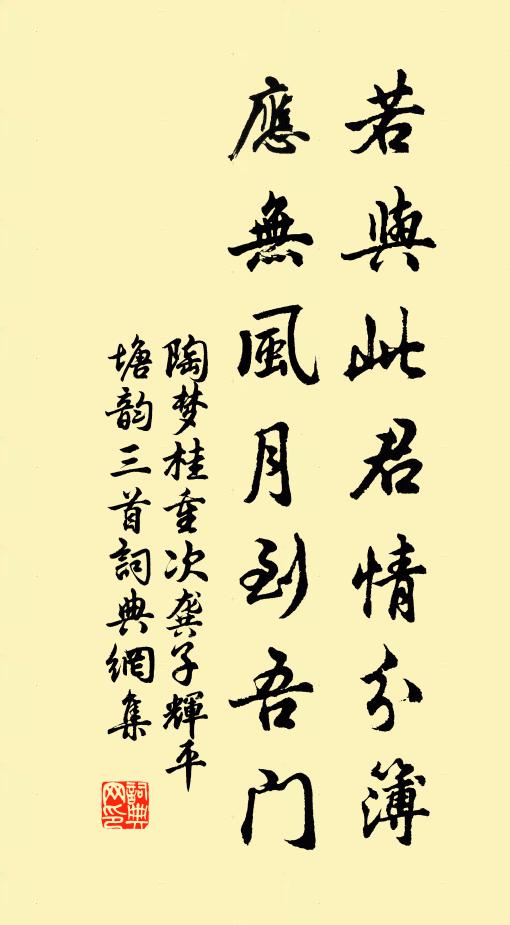 若與此君情分簿
應無風月到吾門
陶梦桂重次龚子輝平
塘韵三首詞典網集
詞典
网印